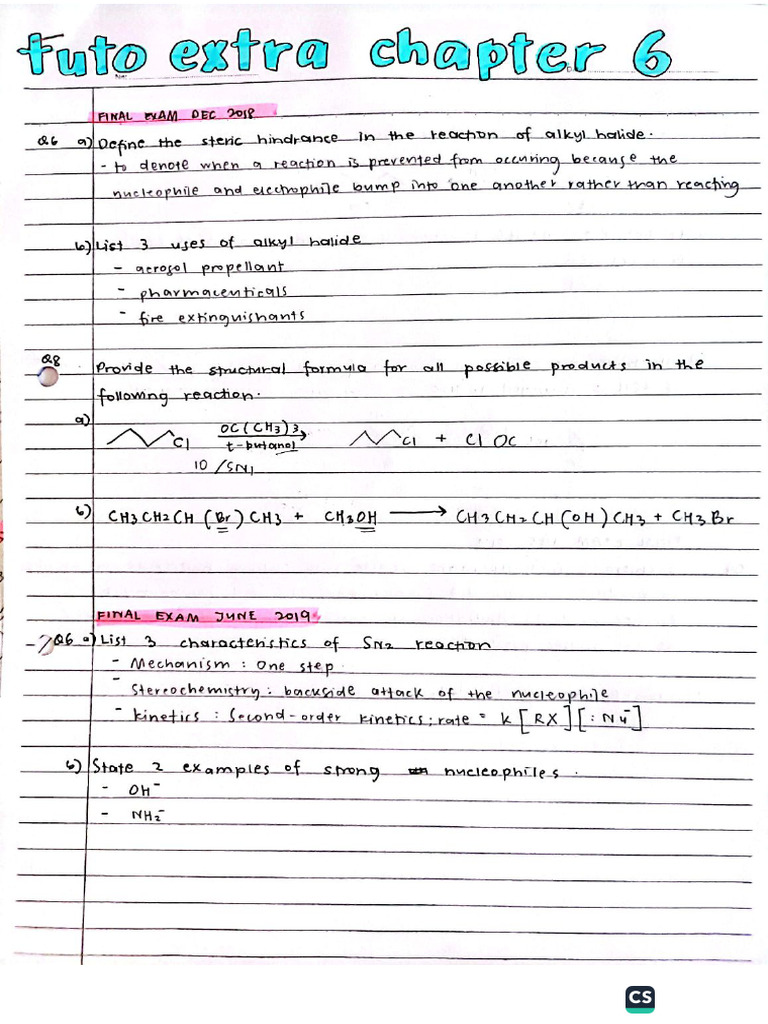 tuto extra chapter 6
FINAL EXAM DEC 2018
Q6 a) Define the steric hindrance in the reaction of alkyl halide.
- to denote when a reaction is prevented from occuring because the
nucleophile and electrophile bump into one another rather than reacting
b) List 3 uses of alkyl halide
- aerosol propellant
- pharmaceuticals
- fire extinguishants
Q8 Provide the structural formula for all possible products in the
following reaction.
a)
Cl OC(CH3)3 t-butanol Cl + Cl OC
10 /SN1
b) CH3CH2CH(Br)CH3 + CH3OH → CH3CH2CH(OH)CH3 + CH3Br
FINAL EXAM JUNE 2019
Q6 a) List 3 characteristics of SN2 reaction
- Mechanism : One step.
- Stereochemistry : backside attack of the nucleophile
- kinetics : Second-order kinetics; rate = k[RX][:Nu⁻]
b) State 2 examples of strong nucleophiles.
- OH⁻
- NH2⁻
CS